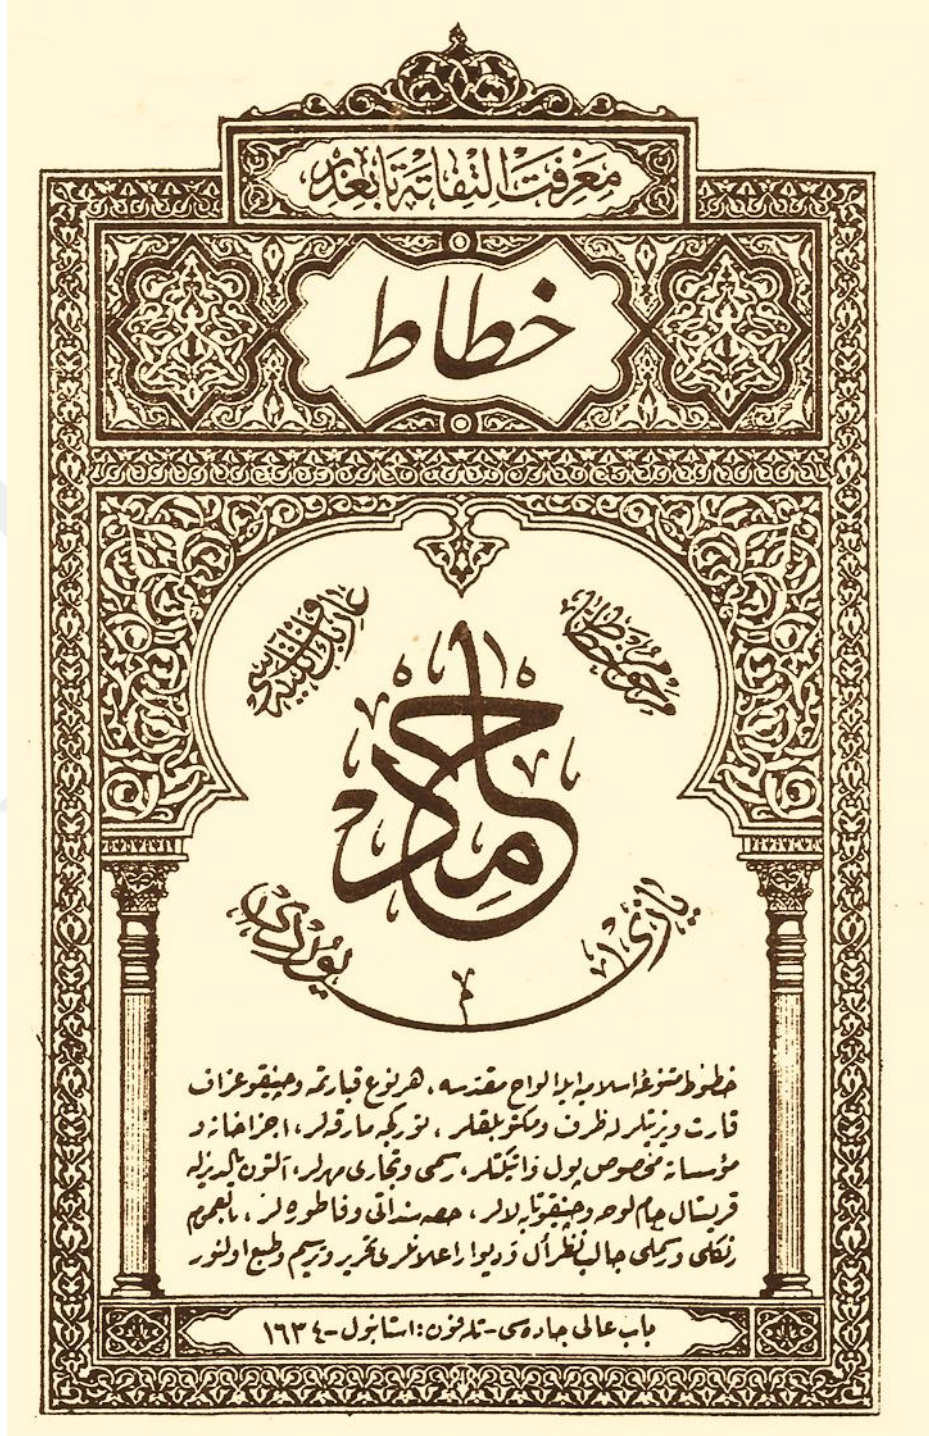 معرفت التفاته تابعدر
خطاط
حامد
یازی یوردی
خطوط متنوعهٔ اسلامیه ایله الواح مقدسه، هر نوع قبارتمه و چینقوغراف
قارت ویزیتلر له ظرف و مکتوبلقلر، تورکجه مارقه لر، اجزاخانه و
مؤسساته مخصوص پول و اتیکتلر، رسمی و تجاری مهرلر، آلتون یالدیزله
قریستال جام لوحه و چینقو تابلالر، حصه سنداتی و فاطوره لر، بالعموم
رنکلی و رسملی جالب نظر أل و دیوار اعلانلری تحریر و ترسیم و طبع اولنور
باب عالی جاده سی - تلفون: استانبول - ١٦٣٤